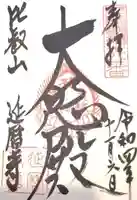 奉拝
令和四年
十一月六日
大黒殿
比叡山
延暦寺